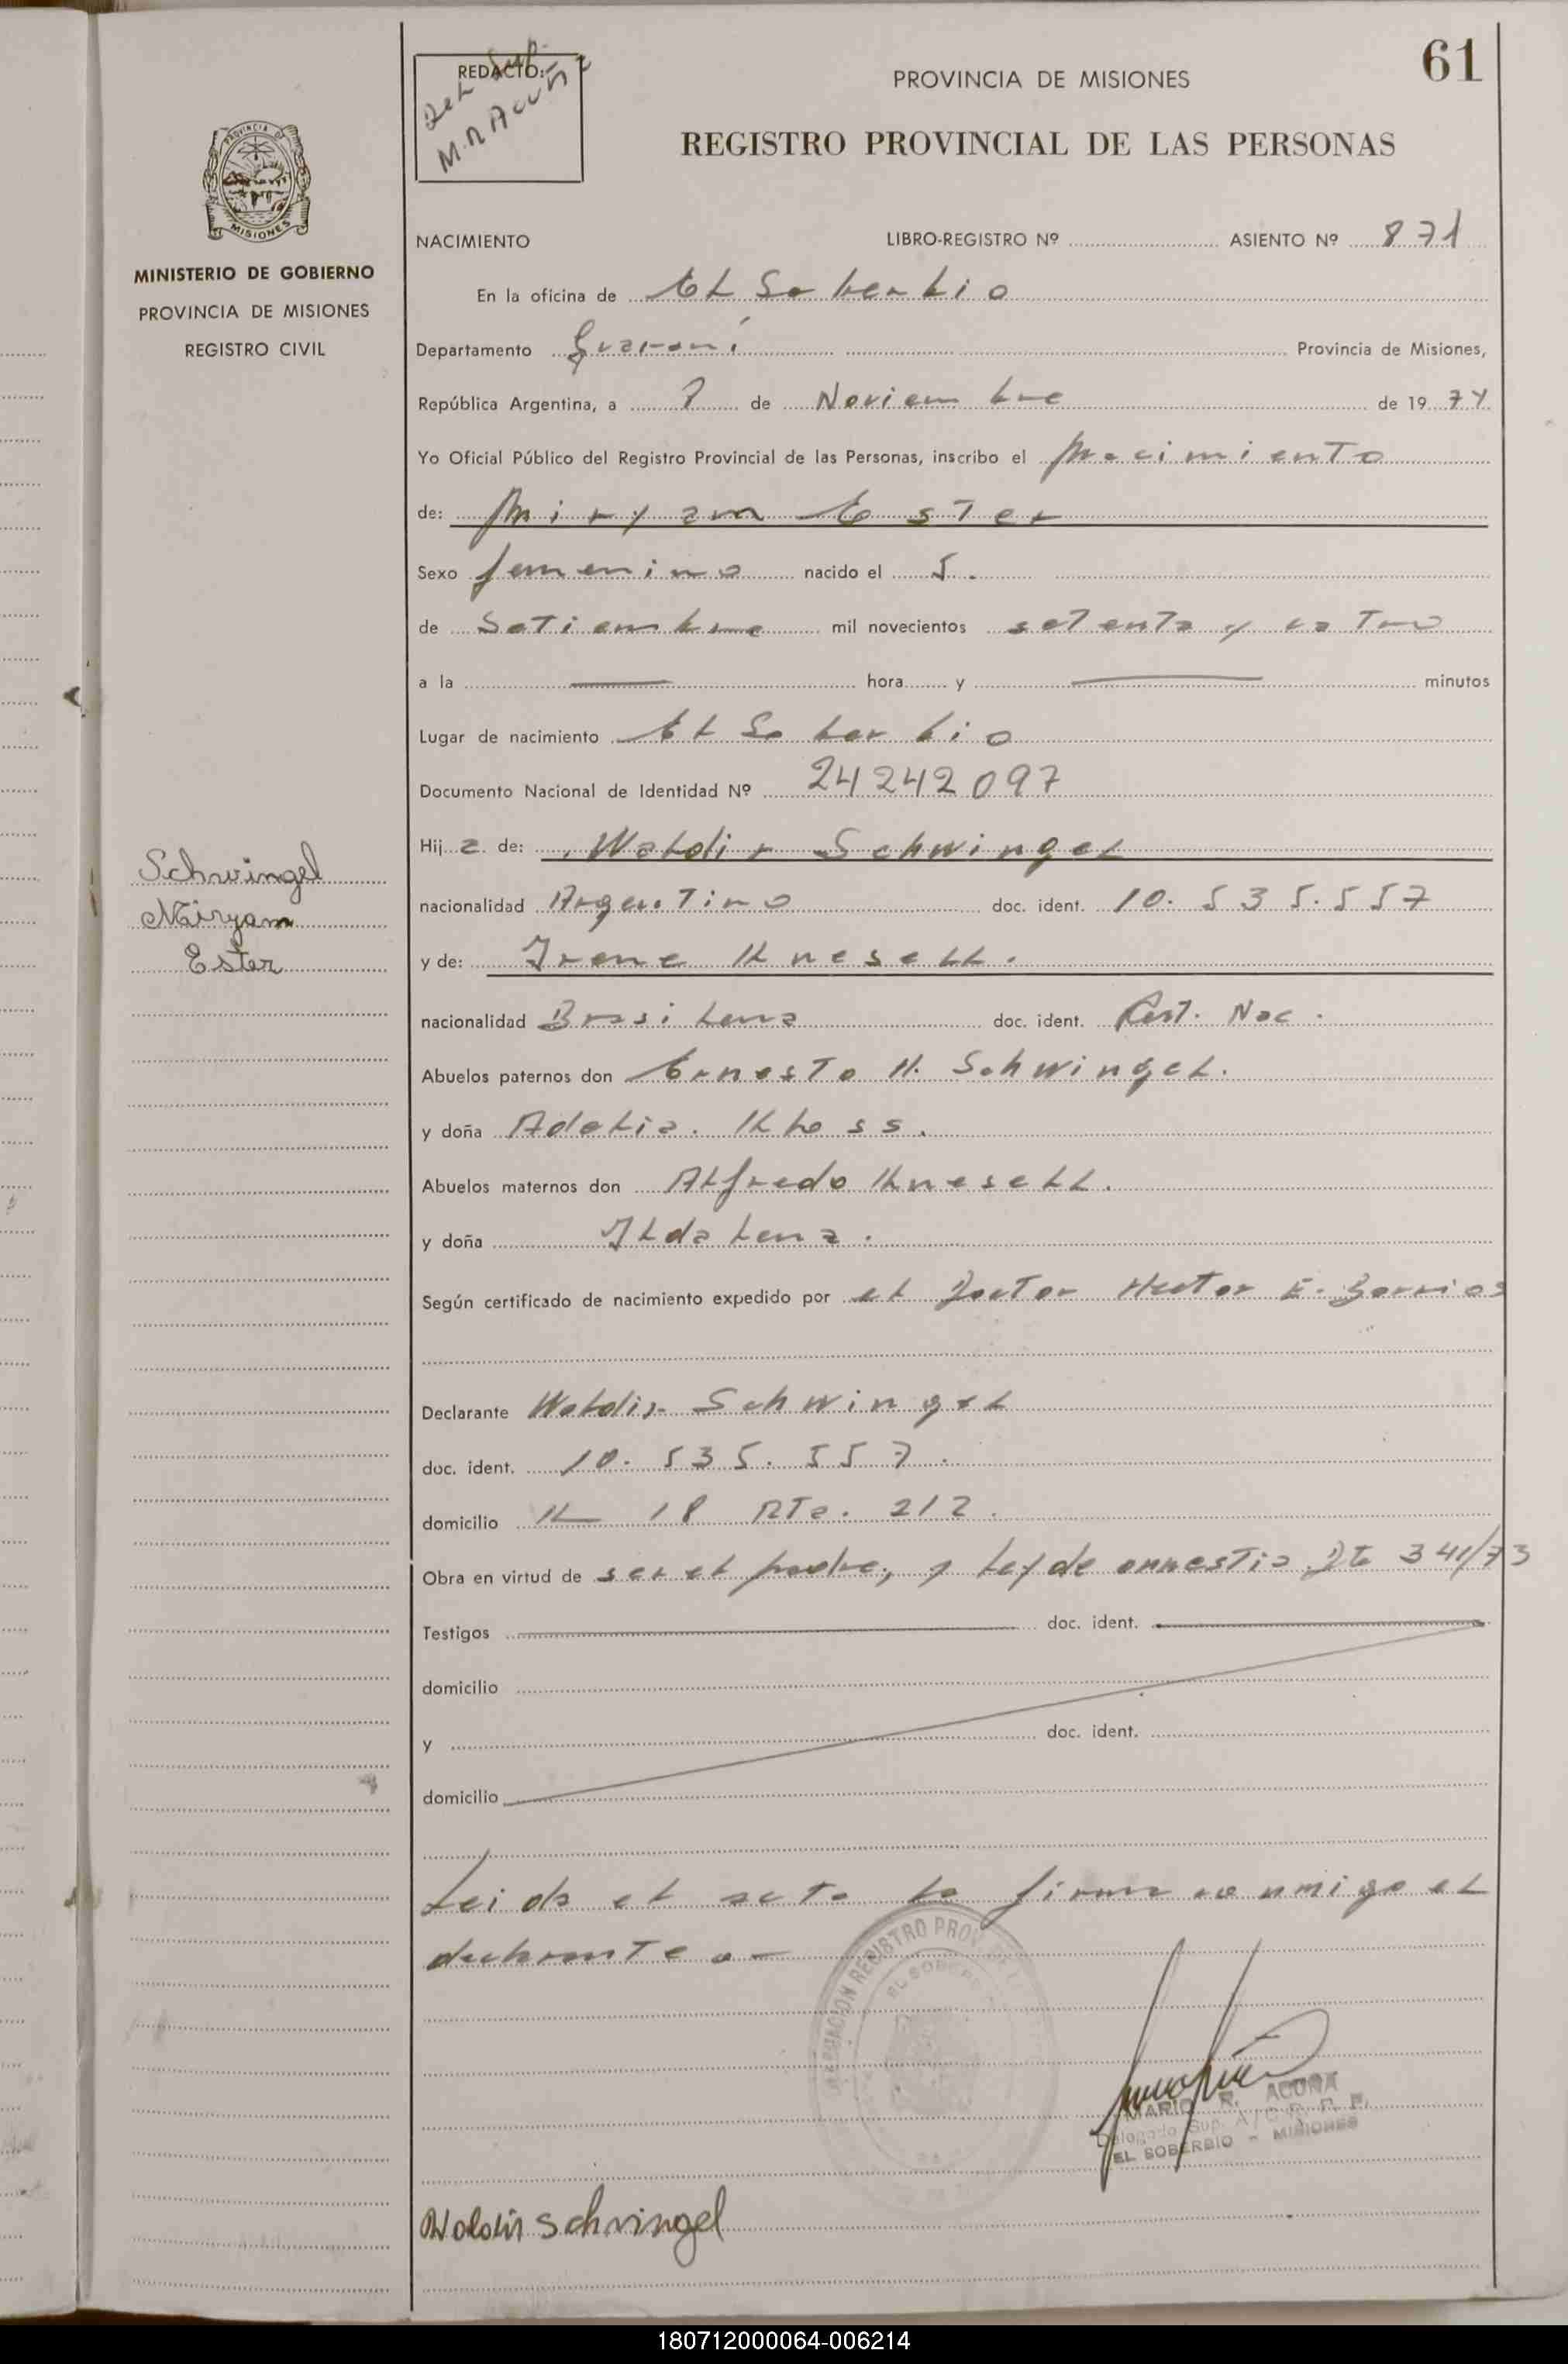 61
REDACTO:
Del. Sup.
M.R. Acuña
PROVINCIA DE MISIONES
REGISTRO PROVINCIAL DE LAS PERSONAS
PROVINCIA DE
MISIONES
MINISTERIO DE GOBIERNO
PROVINCIA DE MISIONES
REGISTRO CIVIL
NACIMIENTO LIBRO-REGISTRO Nº ASIENTO Nº 871
En la oficina de El Soberbio
Departamento Guaraní Provincia de Misiones,
República Argentina, a 8 de Noviembre de 19 74
Yo Oficial Público del Registro Provincial de las Personas, inscribo el Nacimiento
de: Miryam Ester
Sexo femenino nacido el 5.
de Setiembre mil novecientos setenta y catro
a la hora y minutos
Lugar de nacimiento El Soberbio
Documento Nacional de Identidad Nº 24242097
Hij a de: Waldir Schwingel
Schwingel
Miryam
Ester
nacionalidad Argentino doc. ident. 10.535.557
y de: Irene Knesell.
nacionalidad Brasilena doc. ident. Cert. Nac.
Abuelos paternos don Ernesto H. Schwingel.
y doña Adelia. Kloss.
Abuelos maternos don Alfredo Knesell.
y doña Ilda Lenz.
Según certificado de nacimiento expedido por el Doctor Hector E. Barrios
Declarante Waldir Schwingel
doc. ident. 10.535.557.
domicilio K 18 Rta. 212.
Obra en virtud de ser el padre, y ley de amnestia Dto 341/73
Testigos doc. ident.
domicilio
y doc. ident.
domicilio
Leida el acta la firma conmigo el
declarante.-
REGISTRO PROV
EL SOBERBIO
MARIO R. ACUÑA
Delegado Sup. A/C R. P. P.
EL SOBERBIO - MISIONES
Woldir Schwingel
180712000064-006214